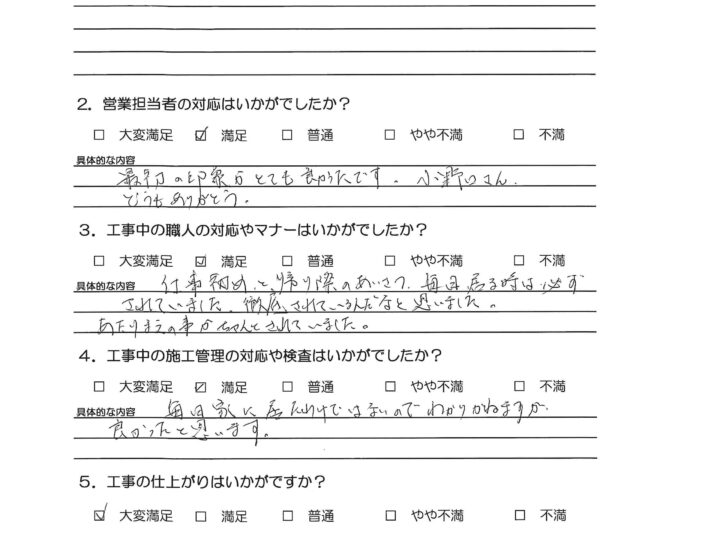 2．営業担当者の対応はいかがでしたか？
□ 大変満足 ☑ 満足 □ 普通 □ やや不満 □ 不満
具体的な内容
最初の印象がとても良かったです。小野口さん、
どうもありがとう。
3．工事中の職人の対応やマナーはいかがでしたか？
□ 大変満足 ☑ 満足 □ 普通 □ やや不満 □ 不満
具体的な内容 仕事初め、と、帰り際のあいさつ、毎日居る時は必ず
されていました、徹底されているんだなと思いました。
あたりまえの事がちゃんとされていました。
4．工事中の施工管理の対応や検査はいかがでしたか？
□ 大変満足 ☑ 満足 □ 普通 □ やや不満 □ 不満
具体的な内容 毎日家に居たわけではないのでわかりかねますが、
良かったと思います。
5．工事の仕上がりはいかがですか？
☑ 大変満足 □ 満足 □ 普通 □ やや不満 □ 不満